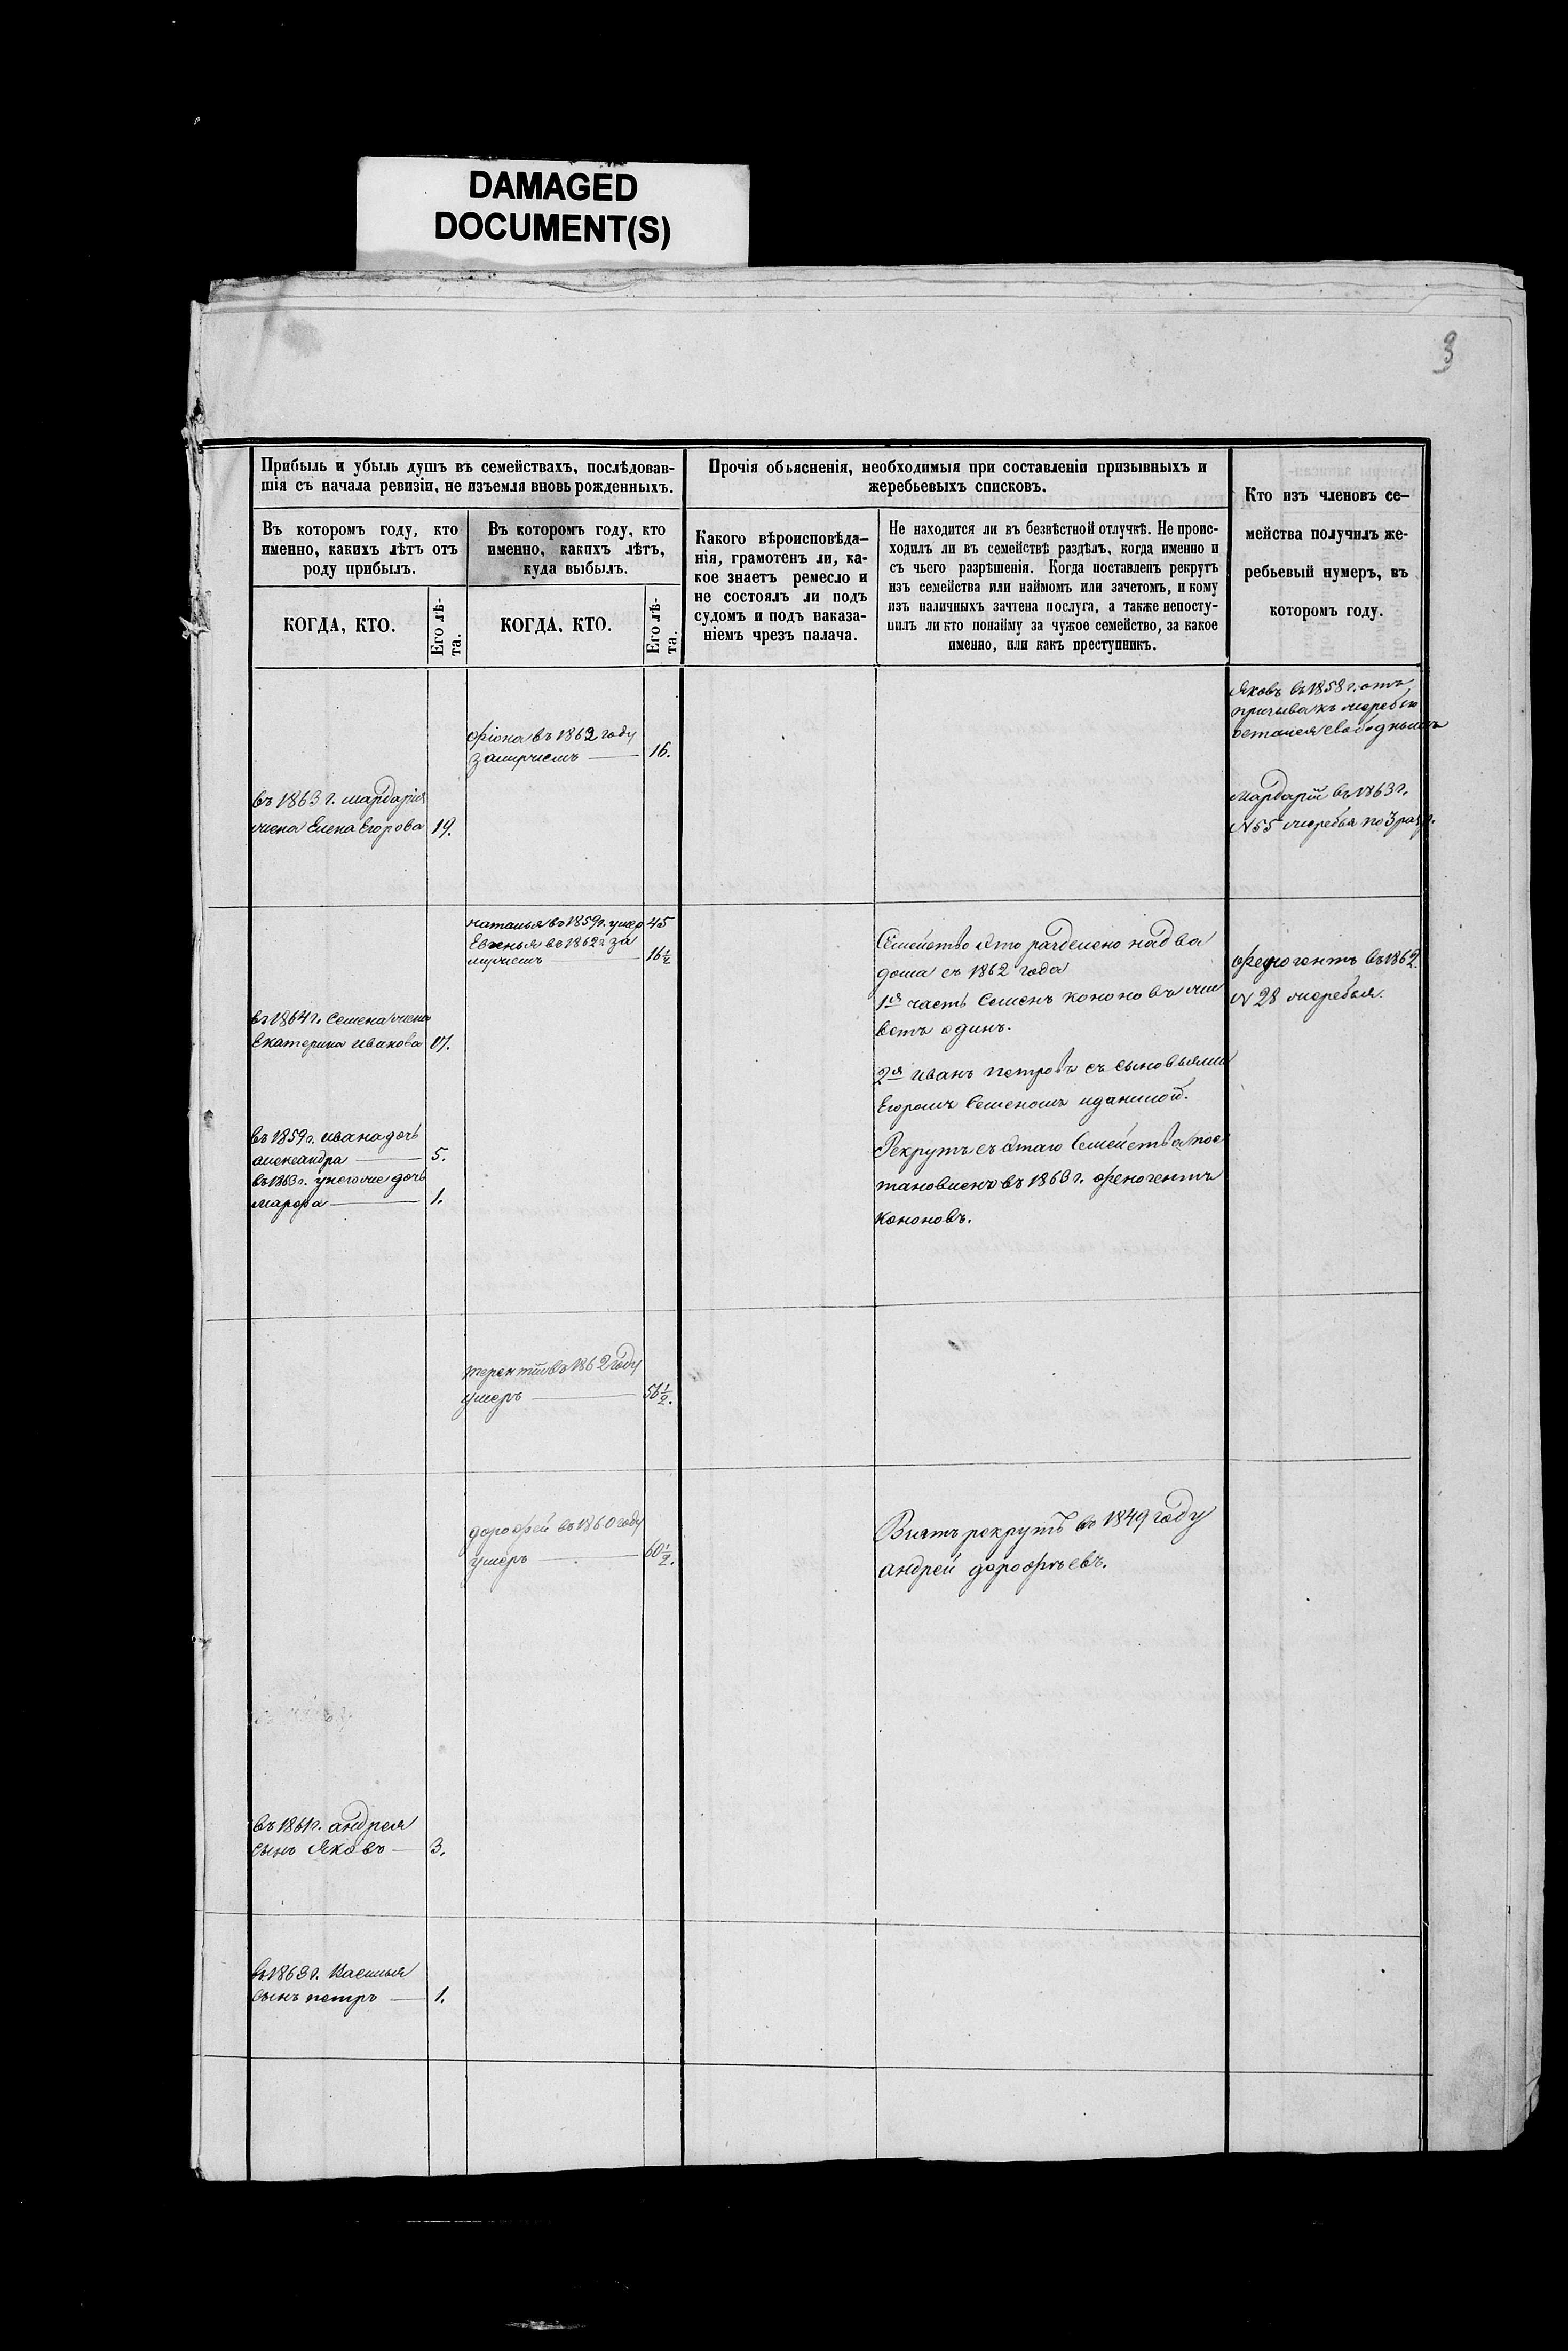 DAMAGED
DOCUMENT(S)
3
Прибыль и убыль душъ въ семействахъ, послѣдовав-
шія съ начала ревизіи, не изъемля вновь рожденныхъ.
Прочія объясненія, необходимыя при составленіи призывныхъ и
жеребьевыхъ списковъ.
Кто изъ членовъ се-
мейства получилъ же-
ребьевый нумеръ, въ
которомъ году.
Въ которомъ году, кто
именно, какихъ лѣтъ отъ
роду прибылъ.
Въ которомъ году, кто
именно, какихъ лѣтъ,
куда выбылъ.
Какого вѣроисповѣда-
нія, грамотенъ ли, ка-
кое знаетъ ремесло и
не состоялъ ли подъ
судомъ и подъ наказа-
ніемъ чрезъ палача.
Не находится ли въ безвѣстной отлучкѣ. Не проис-
ходилъ ли въ семействѣ раздѣлъ, когда именно и
съ чьего разрѣшенія. Когда поставленъ рекрутъ
изъ семейства или наймомъ или зачетомъ, и кому
изъ наличныхъ зачтена послуга, а также непосту-
пилъ ли кто понайму за чужое семейство, за какое
именно, или какъ преступникъ.
КОГДА, КТО.
Его лѣ-
та.
КОГДА, КТО.
Его лѣ-
та.
Яковъ въ 1858 г. отъ
призыва къ жеребью
остался свободнымъ
фіона въ 1862 году
замужемъ — 16.
въ 1863 г. мардарія
жена Елена Егорова 19.
Мардарій въ 1863 г.
N 55 жеребья по 3 разр.
наталья въ 1859 г. умер 45
Евгенья въ 1862 г. за
мужемъ — 16 1/2
Семейство это разделено на два
дома съ 1862 года
1я часть Семенъ Кононовъ жи
ветъ одинъ.
2я Иванъ петровъ съ сыновьями
Егоромъ Семеномъ и данилой.
Рекрутъ съ этаго Семейства пос
тановленъ въ 1863 г. феногентъ
Кононовъ.
феногентъ въ 1862
N 28 жеребья.
въ 1864 г. Семена жена
Екатерина Иванова 17.
въ 1859 г. Ивана дочь
александра — 5.
въ 1863 г. у него же дочь
марфа — 1.
терентій въ 1862 году
умеръ — 56 1/2.
дорофей въ 1860 году
умеръ — 60 1/2.
Взятъ рекрутъ въ 1849 году
андрей дорофѣевъ.
въ 1861 г. андрея
сынъ Яковъ — 3.
въ 1863 г. Василья
сынъ петръ — 1.